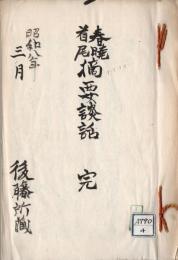 春暁
首尾
摘要談話 完
昭和八年
三月
後藤所蔵
A790
4